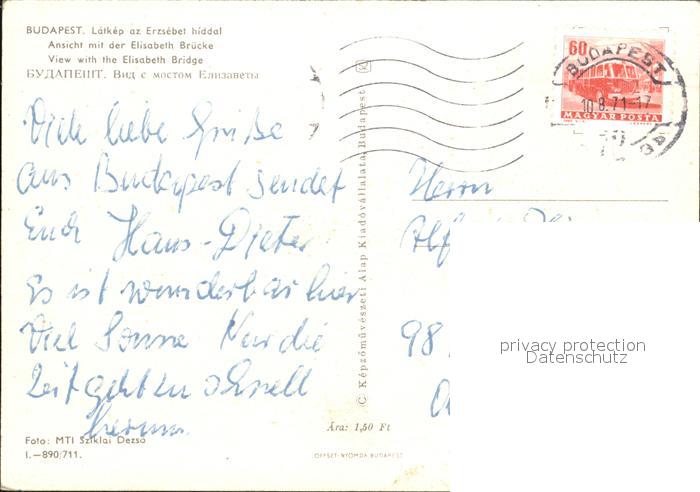 BUDAPEST. Látkép az Erzsébet híddal
Ansicht mit der Elisabeth Brücke
View with the Elisabeth Bridge
БУДАПЕШТ. Вид с мостом Елизаветы
60
BUDAPEST
10.8.71-17
MAGYAR POSTA
Viele liebe Grüße
aus Budapest sendet
Euch Hans-Dieter
Es ist wunderbar hier
Viel Sonne Nur die
Zeit geht zu schnell
herum.
Herrn
98
(C Képzőművészeti Alap Kiadóvállalata, Budapest
privacy protection
Datenschutz
Ára: 1,50 Ft
Foto: MTI Sziklai Dezső
I.—890/711.
OFFSET-NYOMDA BUDAPEST